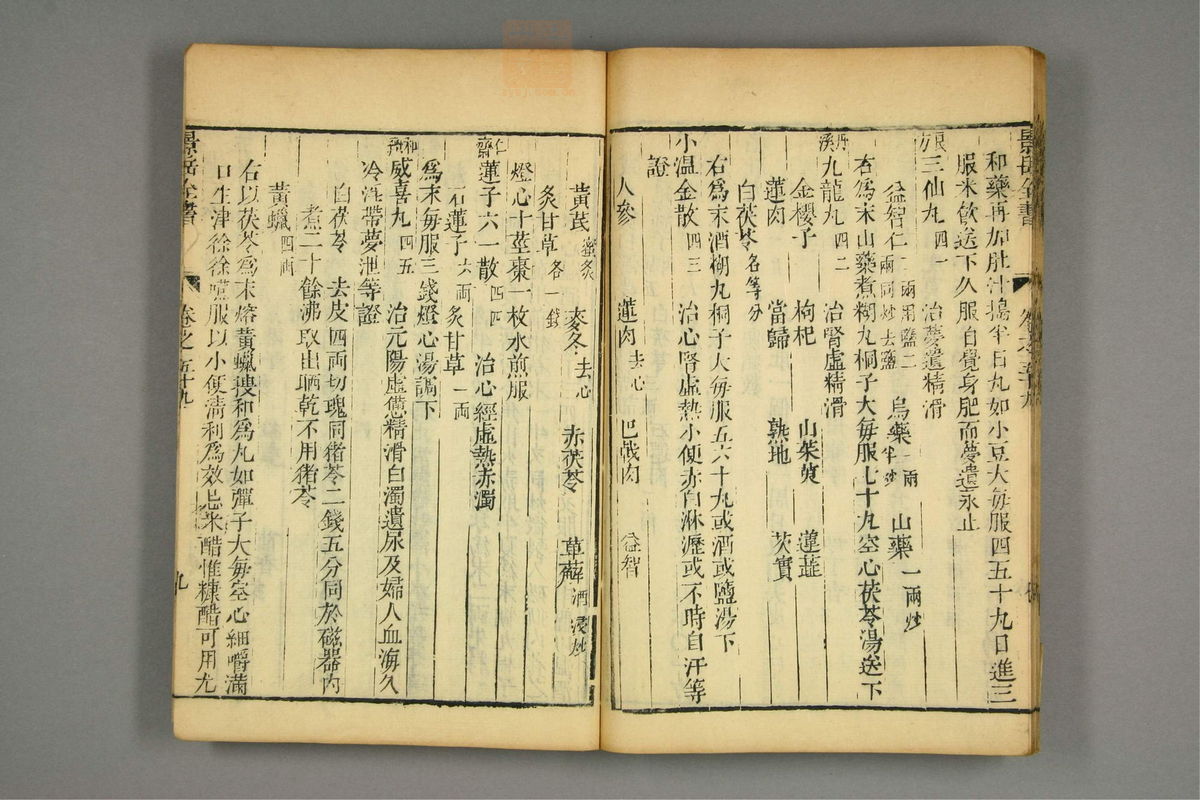 景岳全書
卷之五十九
和藥再加肚汁搗半日丸如小豆大每服四五十丸日進三
服米飲送下久服自覺身肥而夢遺永止
良方三仙丸四一 治夢遺精滑
益智仁二兩用鹽二兩同炒去鹽 烏藥一兩半炒 山藥一兩炒
右爲末山藥煮糊丸桐子大每服七十丸空心茯苓湯送下
丹溪九龍丸四二 治腎虛精滑
金櫻子 枸杞 山茱萸 蓮蕋
蓮肉 當歸 熟地 芡實
白茯苓各等分
右爲末酒糊丸桐子大每服五六十丸或酒或鹽湯下
小温金散四三 治心腎虛熱小便赤白淋瀝或不時自汗等
證
人參 蓮肉去心 巴戟肉 益智
黃芪蜜炙 麥冬去心 赤茯苓 萆薢酒浸炒
炙甘草各一錢
燈心十莖棗一枚水煎服
仁齋蓮子六一散四四 治心經虛熱赤濁
石蓮子六兩 炙甘草一兩
爲末每服三錢燈心湯調下
和劑威喜丸四五 治元陽虛憊精滑白濁遺尿及婦人血海久
冷淫帶夢泄等證
白茯苓去皮四兩切塊同猪苓二錢五分同於磁器內
煮二十餘沸取出晒乾不用猪苓
黃蠟四兩
右以茯苓爲末熔黃蠟搜和爲丸如彈子大每空心細嚼滿
口生津徐徐嚥服以小便清利爲效忌米醋惟糠醋可用尤
景岳全書
卷之五十九
九